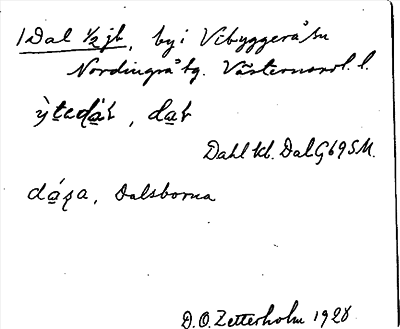 1 Dal ½ jb, by i Vibyggerå sn
Nordingrå tg. Västernorrl. l.
dal
Dahl kl. Dal G 69 S M.
Dalsborna
D. O. Zetterholm 1928